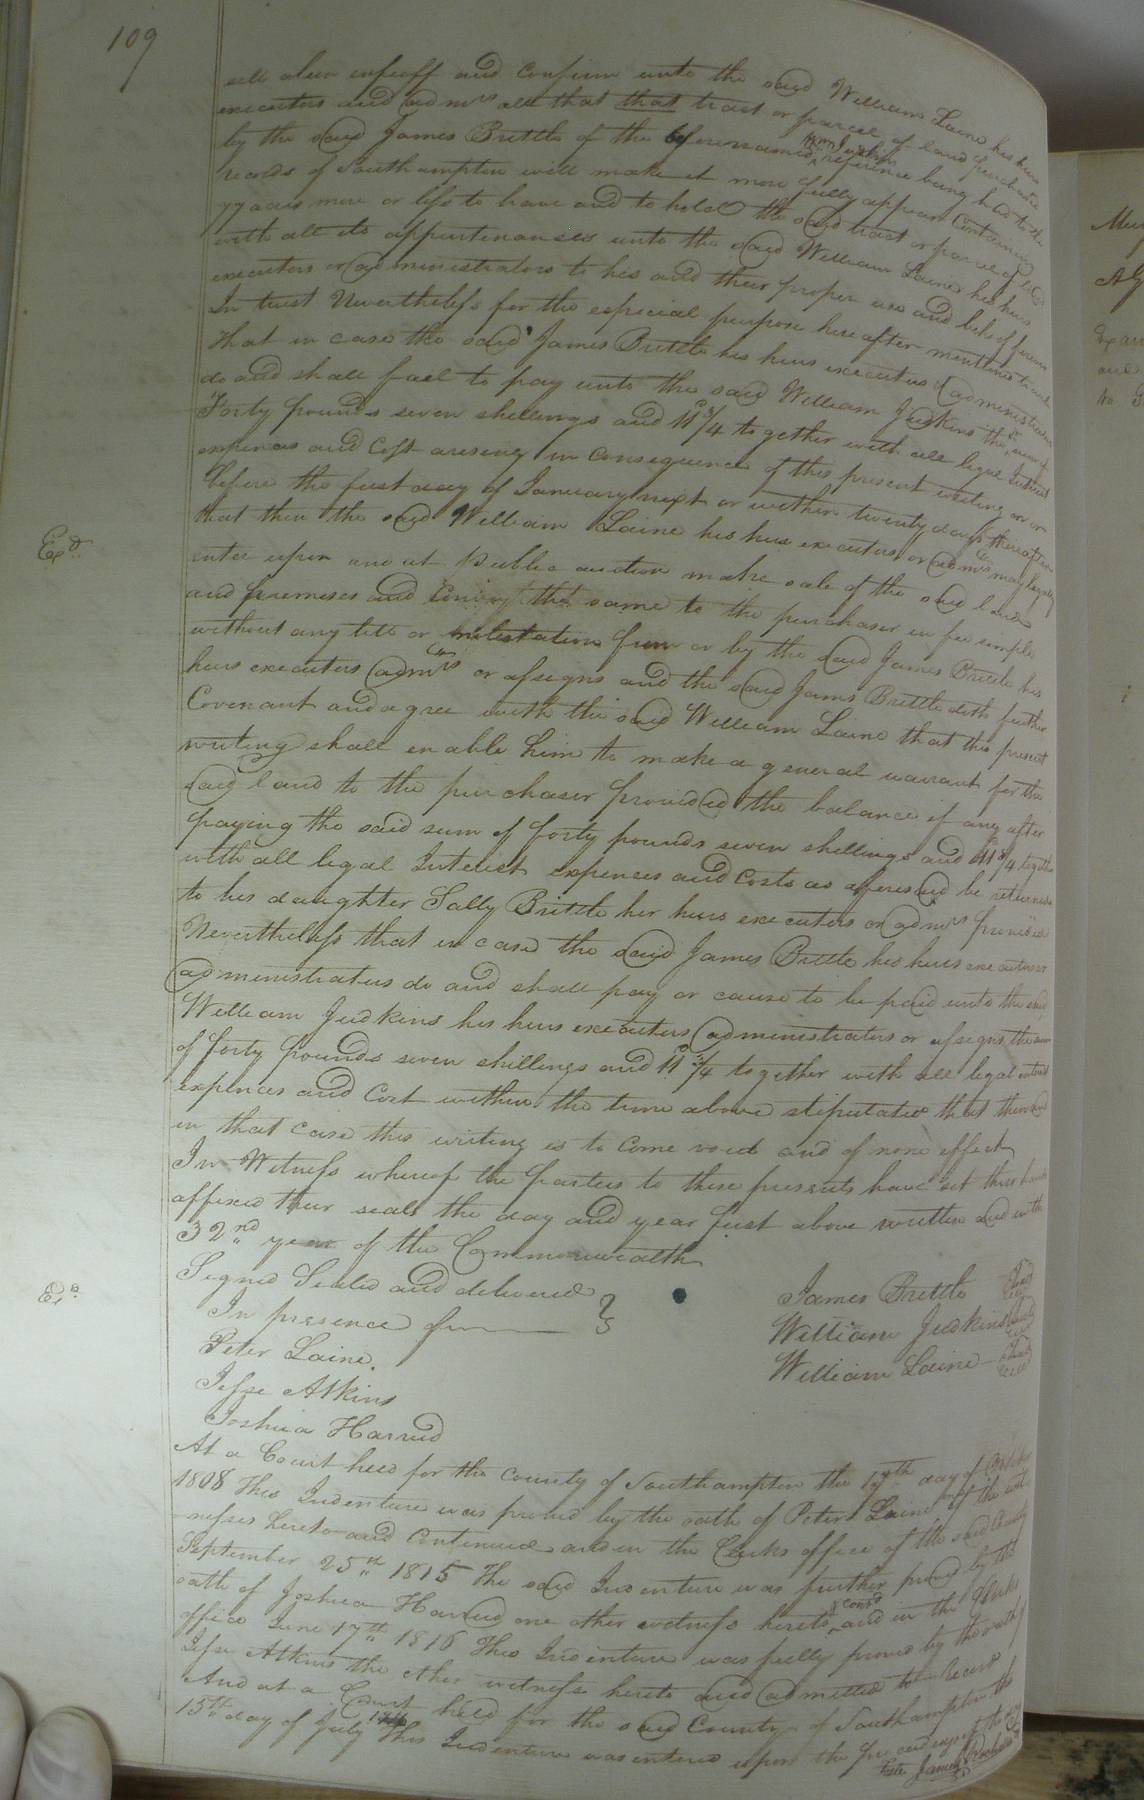 109
sell alien enfeoff and Confirm unto the said William Laine his heirs
executors and admrs all that that tract or parcel of land purchased
by the said James Brittle of the aforenamed Wm Judkins reference being had to the
records of Southampton will make it more fully appear Containing
77 acres more or less to have and to hold the said tract or parcel of
with all its appurtenances unto the said William Laine his heirs
executors or administrators to his and their proper use and behoof forever
In trust Nevertheless for the especial purpose hereafter mentioned
that in case the said James Brittle his heirs executors & administrators
do and shall fail to pay unto the said William Judkins the sum of
Forty pounds seven shillings and 11d 3/4 together with all legal Interest
expences and Cost arising in Consequence of this present writing on or
before the first day of January next or within twenty days thereafter
that then the said William Laine his heirs executors or admrs may legally
enter upon and at Public auction make sale of the said land
and premises and Convey the same to the purchaser in fee simple
without any lett or molestation from or by the said James Brittle his
heirs executors admrs or assigns and the said James Brittle doth further
Covenant and agree with the said William Laine that this present
writing shall enable him to make a general warrant for the
said land to the purchaser provided the balance if any after
paying the said sum of forty pounds seven shillings and 11d 3/4 together
with all legal Interest expences and Costs as aforesaid be returned
to his daughter Sally Brittle her heirs executors or admrs provided
Nevertheless that in case the said James Brittle his heirs executors or
administrators do and shall pay or cause to be paid unto the said
William Judkins his heirs executors administrators or assigns the sum
of forty pounds seven shillings and 11d 3/4 together with all legal interest
expences and Cost within the time above stipulated that then and
in that case this writing is to Come void and of none effect
In Witness whereof the parties to these presents have set their hands
affixed their seals the day and year first above written and in the
32nd year of the Commonwealth
Signed Sealed and delivered
In presence of
James Brittle Seal
William Judkins Seal
William Laine Seal
Peter Laine.
Jesse Atkins
Joshua Harred
At a Court held for the County of Southampton the 17th day of October
1808 This Indenture was proved by the oath of Peter Laine of the wit-
nesses hereto and Continued and in the Clerks office of the said County
September 25th 1815 The said Indenture was further proved by the
oath of Joshua Harred one other witness hereto & Contd and in the Clerks
office June 17th 1816 This Indenture was fully proved by the oath of
Jesse Atkins the other witness hereto and admitted to record
And at a Court held for the said County of Southampton the
15th day of July 1816 This Indenture was entered upon the
Teste James Rochelle
Exd.
Exd.